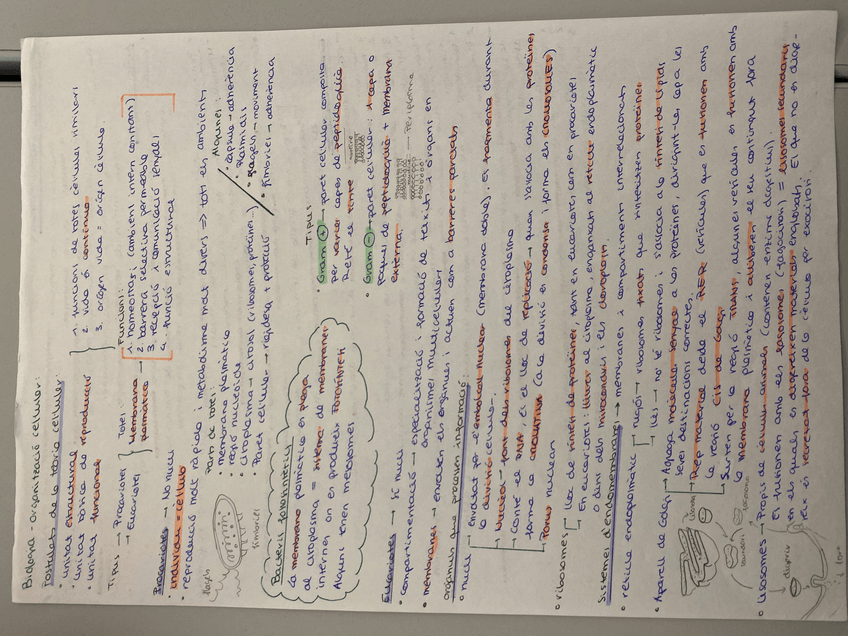 Biologia - organització cel·lular:
Postulats de la teoria cel·lular:
• unitat estructural
• unitat bàsica de reproducció
• unitat funcional
1. funcions de totes cèl·lules similars
2. vida és contínua
3. origen vida = origen cèl·lula
Tipus → Procariotes
→ Eucariotes
Totes
Membrana plasmàtica →
Funcions:
1. homeostasi (ambient intern constant)
2. barrera selectiva permeable
3. recepció i comunicació senyals
4. funció estructural
Procariotes → No nucli
• individu = cèl·lula
• reproducció molt ràpida i metabolisme molt divers ⇒ tots els ambients
Parts de totes:
• membrana plasmàtica
• regió nucleoide
• citoplasma → citosol (ribosomes, proteïnes...)
• Paret cel·lular → rigidesa + protecció
Algunes:
• càpsula → adherència
• flagels → moviment
• fímbries → adherència
flagels
fímbries
Bacteris fotosintètics
La membrana plasmàtica es plega
al citoplasma = sistema de membranes
internes on es produeix FOTOSÍNTESI
Alguns tenen mesosomes
Tipus
• Gram + → paret cel·lular composta
per vàries capes de peptidoglicà.
• Gram - → paret cel·lular: 1 capa o
poques de peptidoglicà + membrana
externa.
Periplasma
Eucariotes → Sí nucli
• compartimentació → especialització i formació de teixits i òrgans en
organismes multicel·lulars
• membranes → envolten els orgànuls i actuen com a barreres parcials
orgànuls que processen informació:
• nucli → Envoltat per l'embolcall nuclear (membrana doble). Es fragmenta durant
la divisió cel·lular.
→ conté el DNA, és el lloc de replicació → quan s'associa amb les proteïnes
forma la cromatina (a la divisió es condensa i forma els cromosomes)
Porus nuclears
• ribosomes → Lloc de síntesi de proteïnes, tant en eucariotes com en procariotes
En eucariotes: lliures al citoplasma, enganxats al reticle endoplasmàtic
o dins dels mitocondris i els cloroplasts.
Sistemes d'endomembranes → membranes i compartiments interrelacionats
• reticle endoplasmàtic → rugós → ribosomes fixats que sintetitzen proteïnes
llis → no té ribosomes i s'associa a la síntesi de lípids
• Aparell de Golgi → Afegeix molècules senyals a les proteïnes, dirigint-les cap a les
seves destinacions correctes.
Rep material desde el RER (vesícules) que es fusionen amb
la regió CIS de Golgi.
Surten per la regió TRANS, algunes vesícules es fusionen amb
la membrana plasmàtica i alliberen el seu contingut fora
• Lisosomes → Propis de cèl·lules animals (contenen enzims digestius).
Es fusionen amb els fagosomes (fagocitosi) = lisosomes secundaris
en els quals es digereixen materials englobats. El que no es dige-
reix és secretat fora de la cèl·lula per exocitosi.